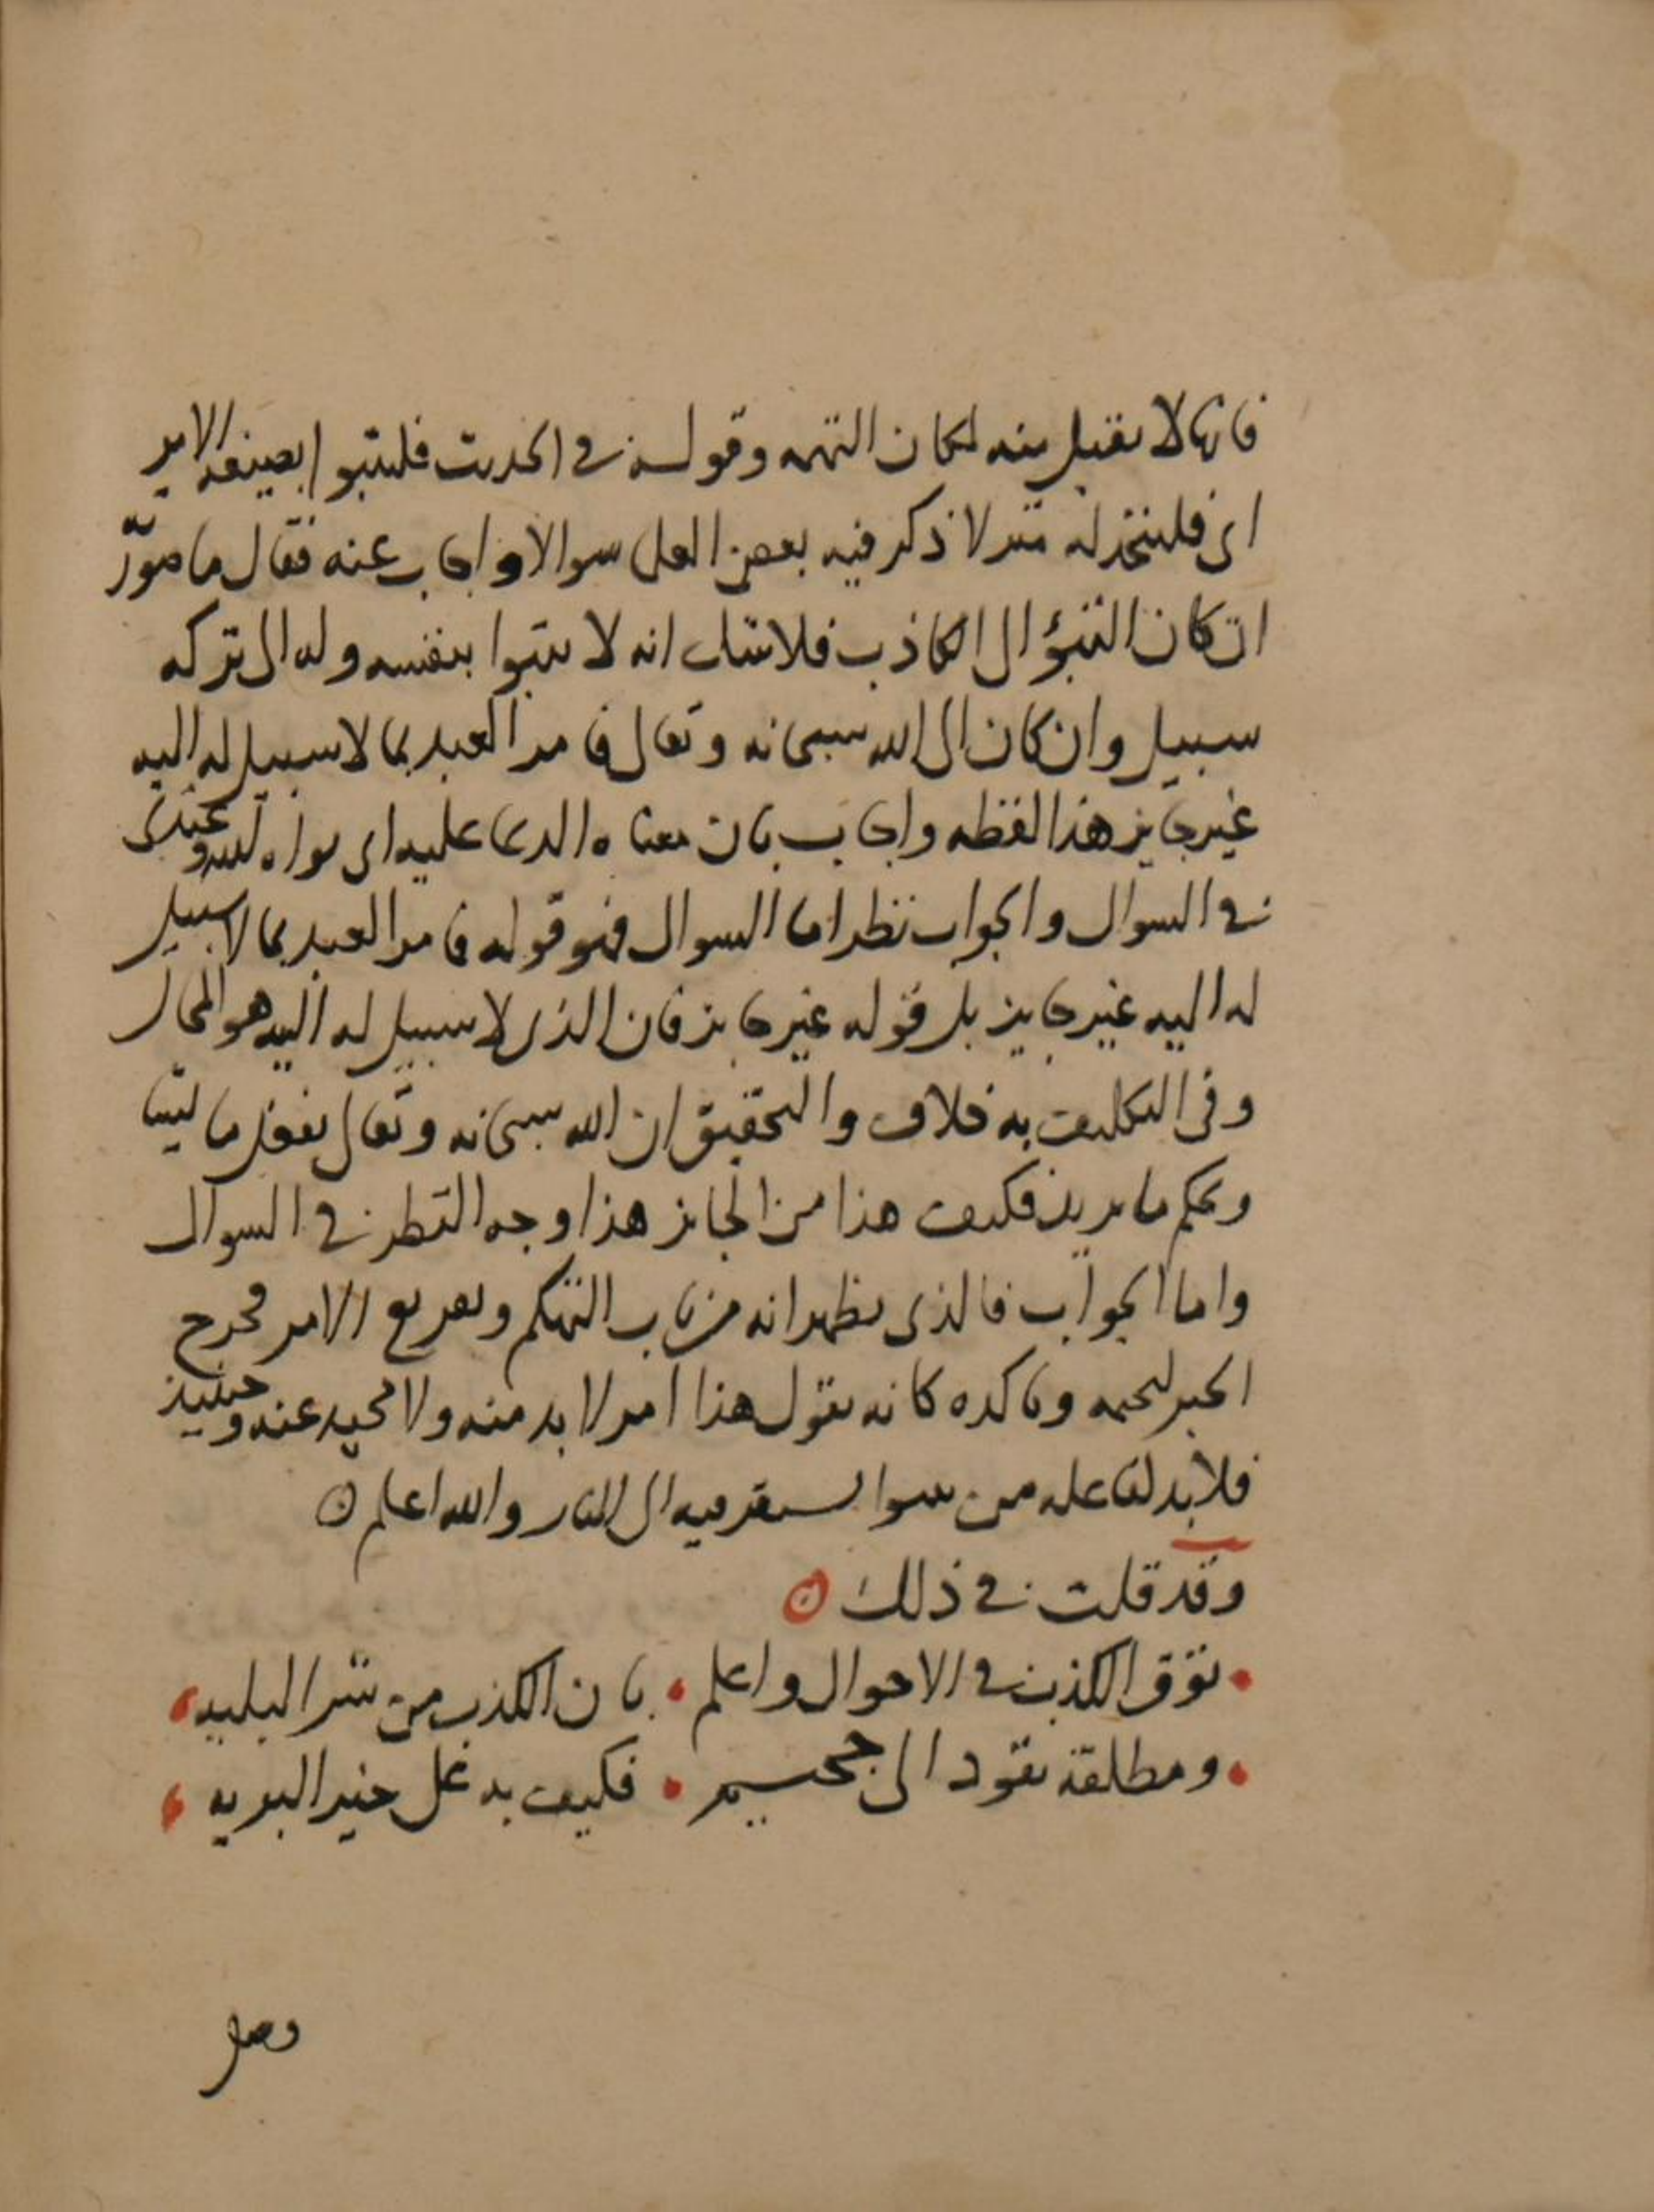 فانها لا تقبل منه لمكان التهمه وقوله في الحديث فليتبوا بصيغة الامر
اى فليتخذ له منزلا ذكر فيه بعض العلما سوالا واجاب عنه فقال ما صورته
ان كان التبؤ الى الكاذب فلا شك انه لا يتبوا بنفسه وله الى تركه
سبيل وان كان الى الله سبحانه وتعالى فامر العبد بما لا سبيل له اليه
غير جايز هذا لفظه واجاب بان معناه الدعا عليه اى بواه الله وعندى
في السوال والجواب نظر اما السوال فهو قوله فامر العبد بما لا سبيل
له اليه غير جايز بل قوله غير جايز فان الذى لا سبيل له اليه هو المحال
وفى التكليف به خلاف والتحقيق ان الله سبحانه وتعالى يفعل ما يشا
ويحكم ما يريد فكيف هذا من الجايز هذا وجه النظر في السوال
واما الجواب فالذى يظهر انه من باب التهكم وتفريع الامر مخرج
الخبر لتحتمه وتاكده كانه يقول هذا امر لا بد منه ولا محيد عنه وحينيذ
فلابد لفاعله من سوا يستقر فيه الى النار والله اعلم
وقد قلت في ذلك
توق الكذب في الاحوال واعلم بان الكذب من شر البليه
ومطلقه يقود الى جحيم فكيف به على خير البريه
وصل